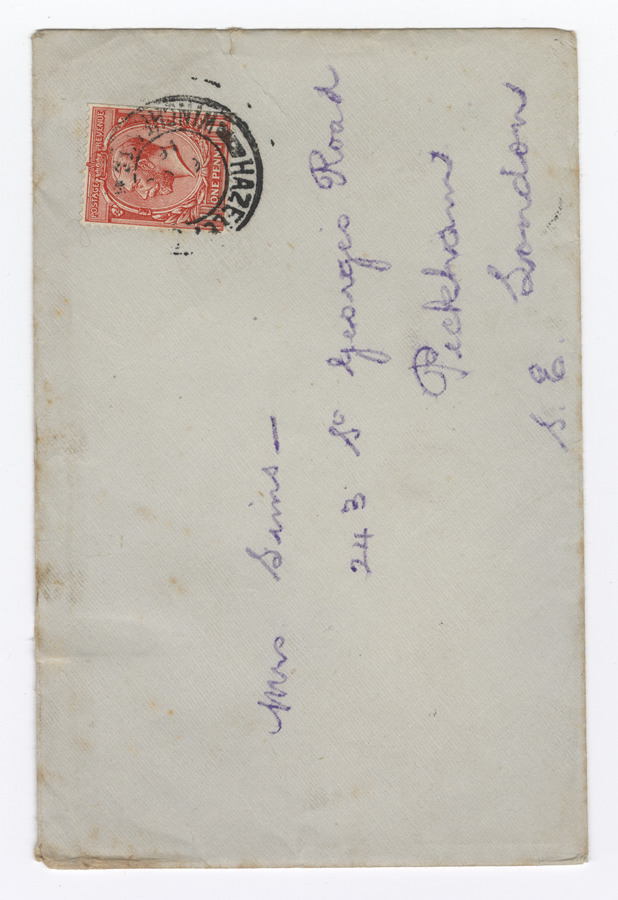 Mrs Sims —
243 St Georges Road
Peckham
S. E. London
POSTAGE REVENUE
ONE PENNY
HAZE